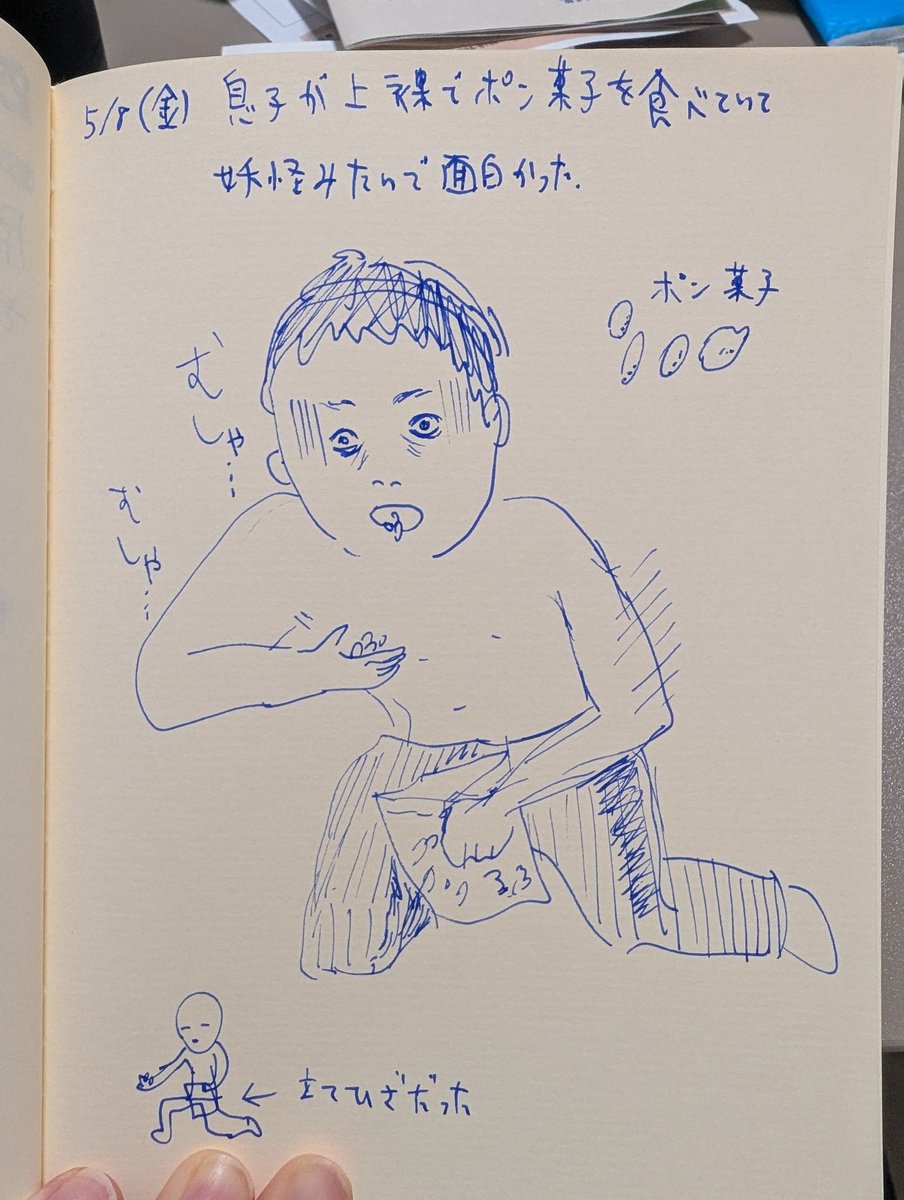 5/8(金) 息子が上裸でポン菓子を食べていて
妖怪みたいで面白かった.
ポン菓子
むしゃ…
むしゃ…
← 立てひざだった